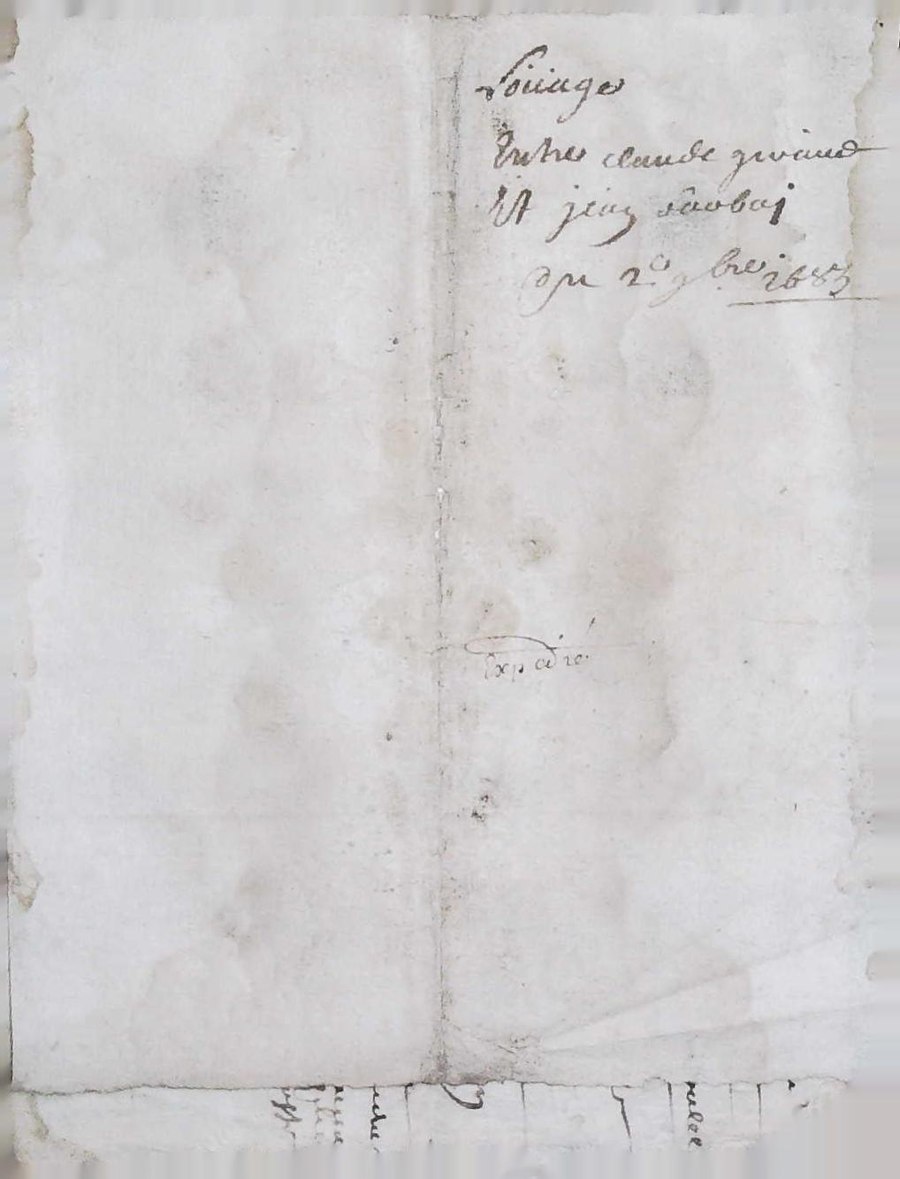 Loüage
Entre claude giraud
Et jean
du 2e 9bre 1683
Expedié